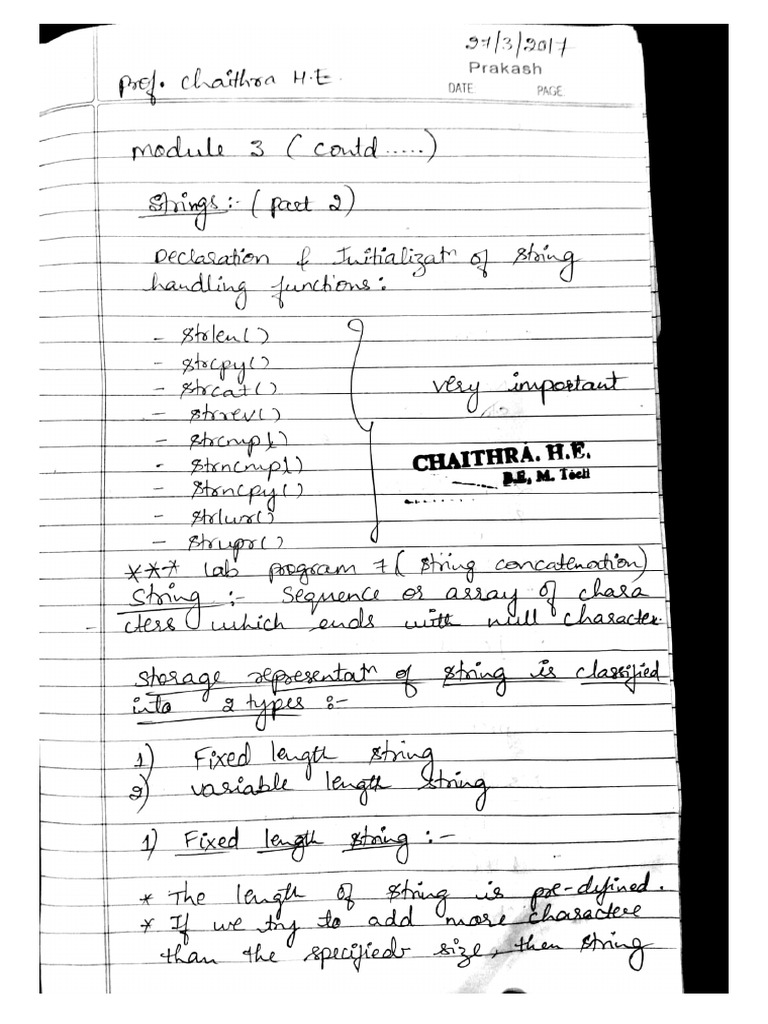 27/3/2017
Prakash
Prof. Chaithra H.E.
DATE PAGE
Module 3 (Contd.....)
Strings :- (Part 2)
Declaration & Initializatn of string
handling functions :
- strlen()
- strcpy()
- strcat()
- strrev()
very important
- strcmp()
- strncmp()
- strncpy()
- strlwr()
- strupr()
CHAITHRA. H.E.
B.E, M. Tech
*** Lab program 7 (string concatenation)
String :- Sequence or array of chara
cters which ends with null character.
Storage representatn of string is classified
into 2 types :-
1) Fixed length string
2) variable length string
1) Fixed length string :-
* The length of string is pre-defined.
* If we try to add more characters
than the specified size, then string